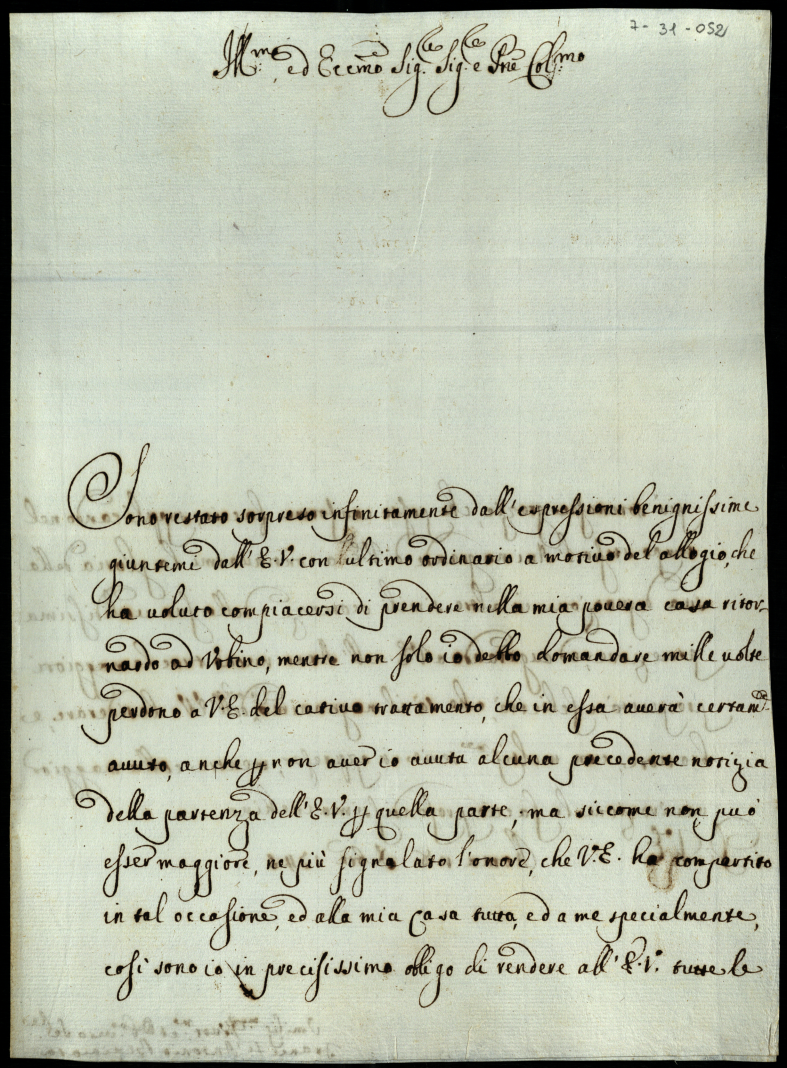 7-31-052
Ill:mo ed Ecc:mo Sig:re Sig:re e Pne Col:mo
Sono restato sorpreso infinitamente dall'espressioni benignissime
giunteme dall'E.V. con l'ultimo ordinario a motivo del'allogio, che
ha voluto compiacersi di prendere nella mia povera casa ritor-
nando ad Vrbino, mentre non solo io debbo domandare mille volte
perdono a V.E. del cativo trattamento, che in essa averà certam:te
avuto, anche p non aver io avuta alcuna precedente notizia
della partenza dell'E.V. p quella parte, ma siccome non può
esser maggiore, ne più signalato l'onore, che V.E. ha compartito
in tal occasione, ed alla mia Casa tutta, ed a me specialmente,
così sono io in precisissimo obligo di rendere all'E.V. tutte le